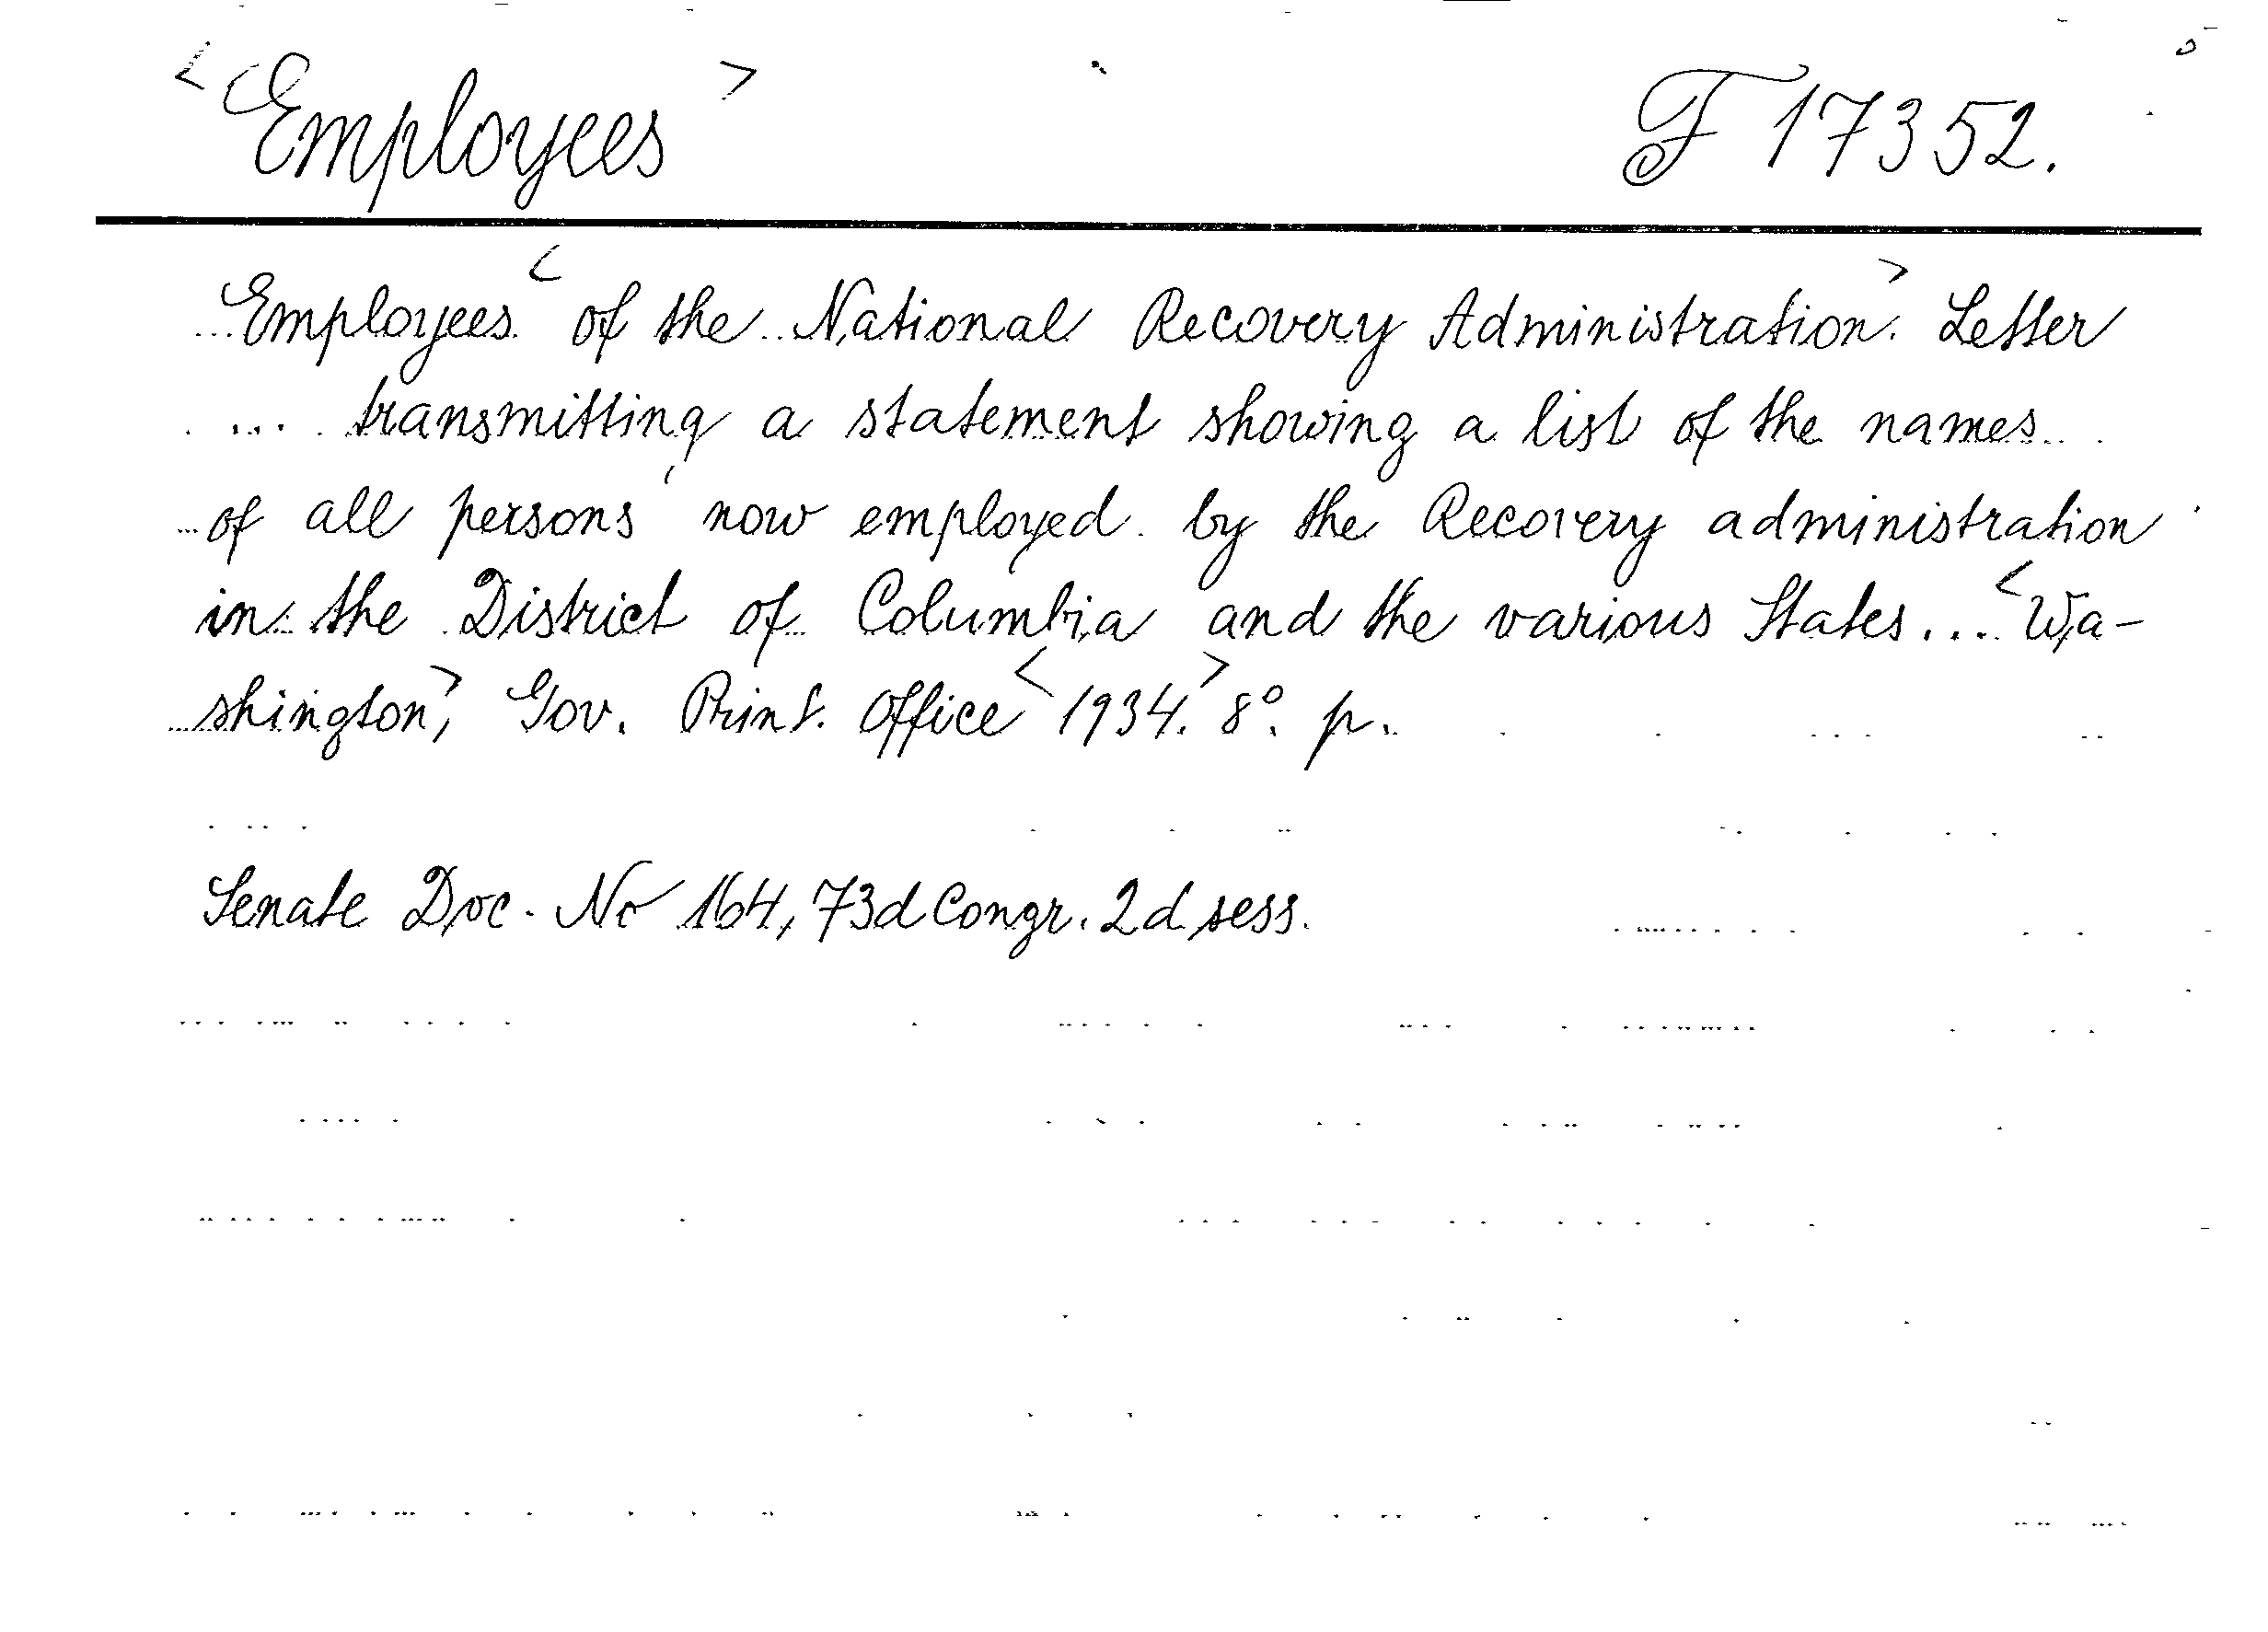 <Employees> F 17352.
Employees <of the National Recovery Administration>. Letter
... transmitting a statement showing a list of the names
of all persons now employed by the Recovery administration
in the District of Columbia and the various States... <Wa-
shington>, Gov. Print. Office <1934.> 8°. p.
Senate Doc. No 164, 73d Congr. 2d sess.